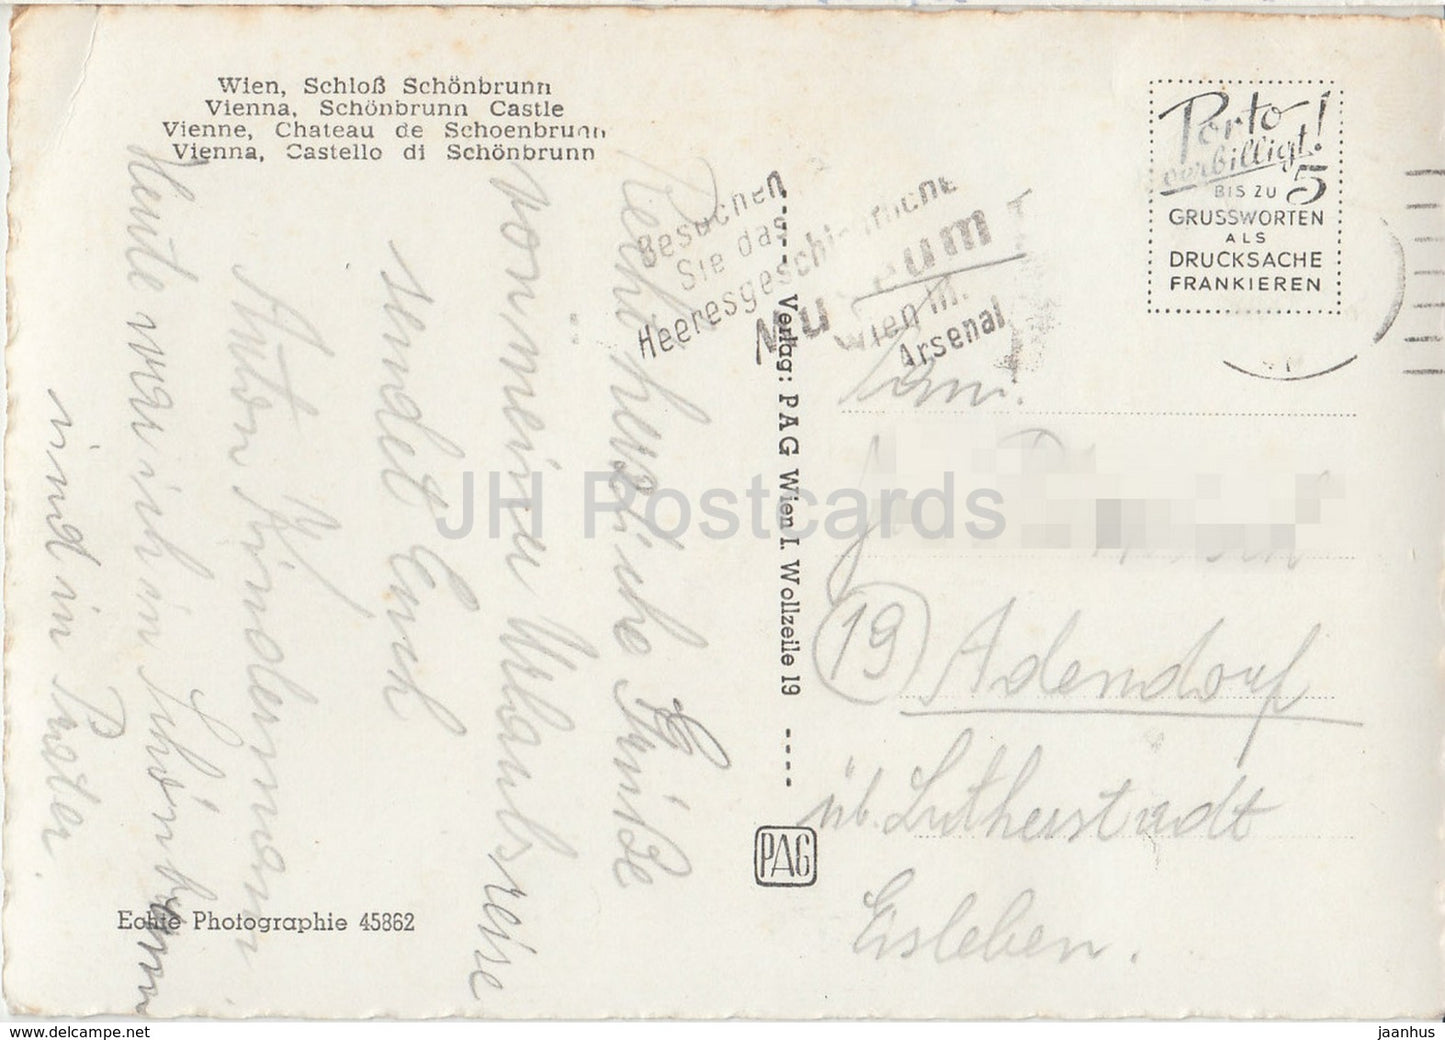 Wien, Schloß Schönbrunn
Vienna, Schönbrunn Castle
Vienne, Chateau de Schoenbrunn
Vienna, Castello di Schönbrunn
Porto
verbilligt!
BIS ZU 5
GRUSSWORTEN
ALS
DRUCKSACHE
FRANKIEREN
Besuchen
Sie das
Heeresgeschichtliche
Museum
Wien III.
Arsenal
Recht herzliche Grüße
von meiner Urlaubsreise
sendet Euch
Anton Kindermann
Heute war ich in Schönbrunn
und im Prater
Verlag: PAG Wien I. Wollzeile 19
PAG
Fam.
(19) Adendorf
üb. Lutherstadt
Eisleben.
Echte Photographie 45862
JH Postcards
www.delcampe.net
jaanhus